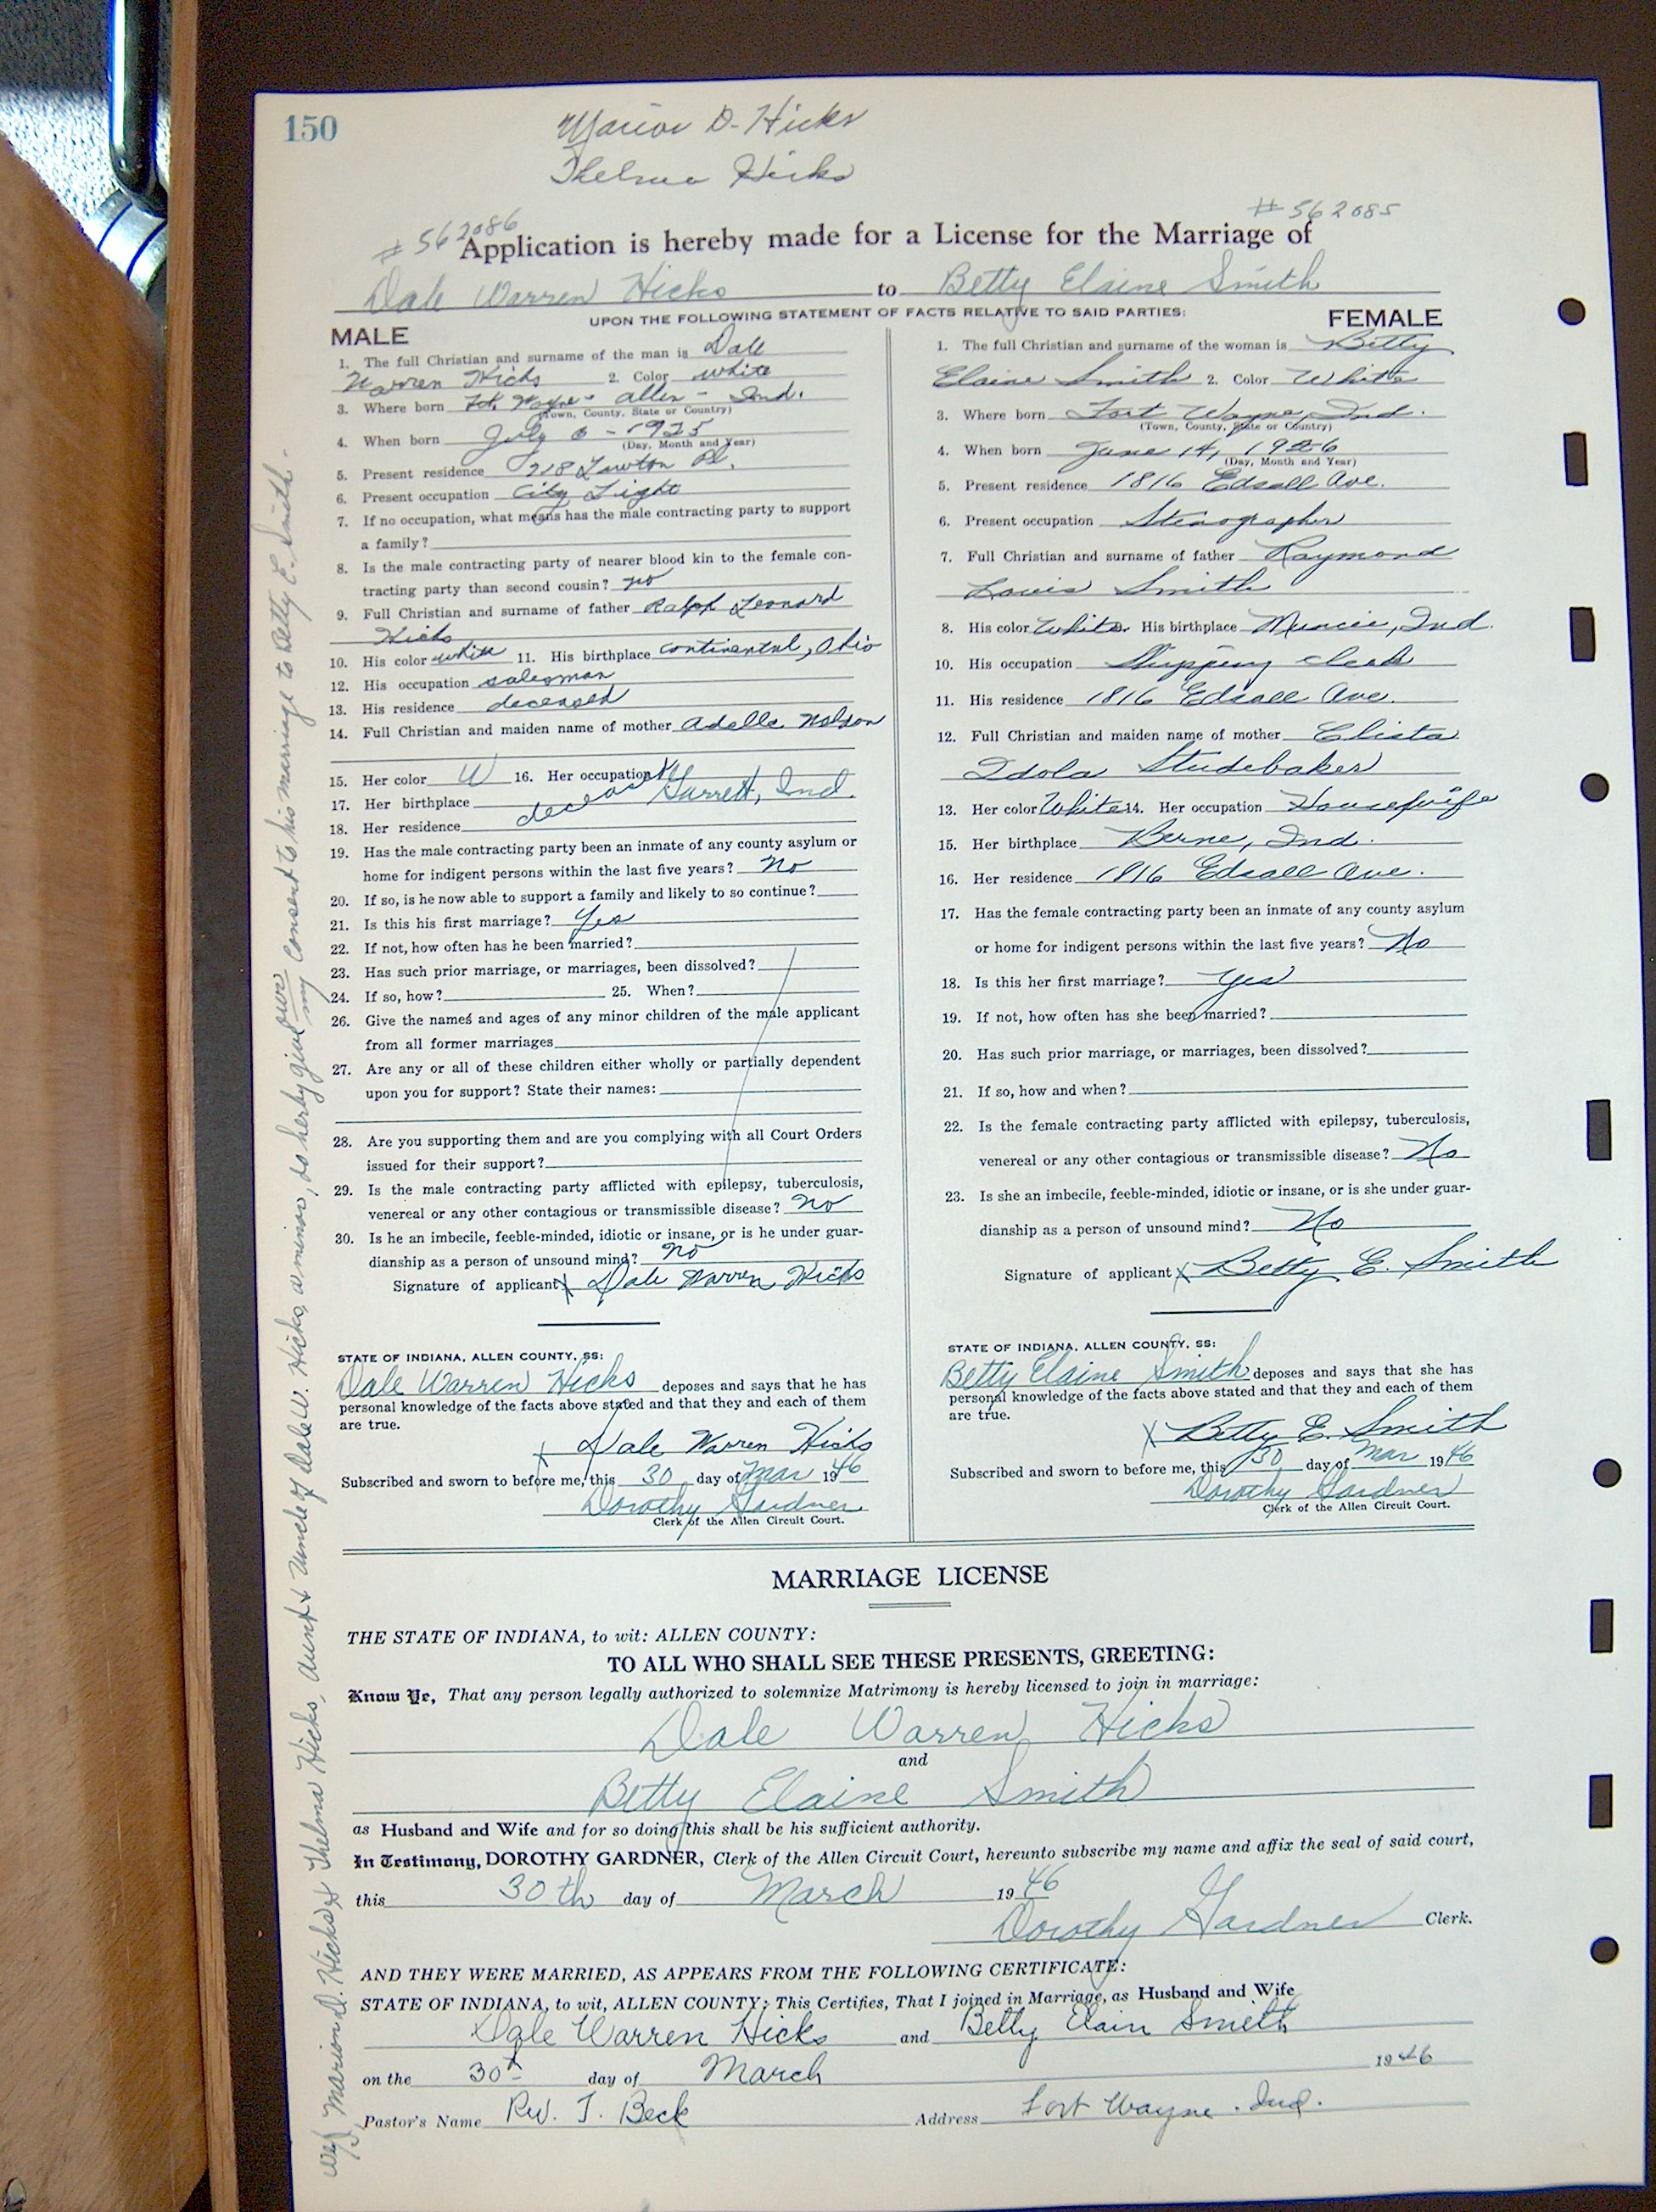 150
Marion D. Hicks
Thelma Hicks
# 562086
# 562085
Application is hereby made for a License for the Marriage of
Dale Warren Hicks to Betty Elaine Smith
UPON THE FOLLOWING STATEMENT OF FACTS RELATIVE TO SAID PARTIES:
MALE
1. The full Christian and surname of the man is Dale
Warren Hicks 2. Color white
3. Where born Ft. Wayne - Allen - Ind.
(Town, County, State or Country)
4. When born July 6 - 1925
(Day, Month and Year)
5. Present residence 218 Lawton Pl.
6. Present occupation City Light
7. If no occupation, what means has the male contracting party to support
a family?
8. Is the male contracting party of nearer blood kin to the female con-
tracting party than second cousin? no
9. Full Christian and surname of father Ralph Leonard
Hicks
10. His color white 11. His birthplace Continental, Ohio
12. His occupation salesman
13. His residence deceased
14. Full Christian and maiden name of mother Adella Nelson
15. Her color W 16. Her occupation
17. Her birthplace Garrett, Ind.
18. Her residence deceased
19. Has the male contracting party been an inmate of any county asylum or
home for indigent persons within the last five years? No
20. If so, is he now able to support a family and likely to so continue?
21. Is this his first marriage? Yes
22. If not, how often has he been married?
23. Has such prior marriage, or marriages, been dissolved?
24. If so, how? 25. When?
26. Give the names and ages of any minor children of the male applicant
from all former marriages
27. Are any or all of these children either wholly or partially dependent
upon you for support? State their names:
28. Are you supporting them and are you complying with all Court Orders
issued for their support?
29. Is the male contracting party afflicted with epilepsy, tuberculosis,
venereal or any other contagious or transmissible disease? No
30. Is he an imbecile, feeble-minded, idiotic or insane, or is he under guar-
dianship as a person of unsound mind? no
Signature of applicant X Dale Warren Hicks
STATE OF INDIANA, ALLEN COUNTY, SS:
Dale Warren Hicks deposes and says that he has
personal knowledge of the facts above stated and that they and each of them
are true.
X Dale Warren Hicks
Subscribed and sworn to before me, this 30 day of Mar 1946
Dorothy Gardner
Clerk of the Allen Circuit Court.
FEMALE
1. The full Christian and surname of the woman is Betty
Elaine Smith 2. Color White
3. Where born Fort Wayne, Ind.
(Town, County, State or Country)
4. When born June 14, 1926
(Day, Month and Year)
5. Present residence 1816 Edsall Ave.
6. Present occupation Stenographer
7. Full Christian and surname of father Raymond
Louis Smith
8. His color White His birthplace Muncie, Ind.
10. His occupation Shipping clerk
11. His residence 1816 Edsall Ave.
12. Full Christian and maiden name of mother Clista
Idola Studebaker
13. Her color White 14. Her occupation Housewife
15. Her birthplace Berne, Ind.
16. Her residence 1816 Edsall Ave.
17. Has the female contracting party been an inmate of any county asylum
or home for indigent persons within the last five years? No
18. Is this her first marriage? yes
19. If not, how often has she been married?
20. Has such prior marriage, or marriages, been dissolved?
21. If so, how and when?
22. Is the female contracting party afflicted with epilepsy, tuberculosis,
venereal or any other contagious or transmissible disease? No
23. Is she an imbecile, feeble-minded, idiotic or insane, or is she under guar-
dianship as a person of unsound mind? No
Signature of applicant X Betty E. Smith
STATE OF INDIANA, ALLEN COUNTY, SS:
Betty Elaine Smith deposes and says that she has
personal knowledge of the facts above stated and that they and each of them
are true.
X Betty E. Smith
Subscribed and sworn to before me, this 30 day of Mar 1946
Dorothy Gardner
Clerk of the Allen Circuit Court.
MARRIAGE LICENSE
THE STATE OF INDIANA, to wit: ALLEN COUNTY:
TO ALL WHO SHALL SEE THESE PRESENTS, GREETING:
Know Ye, That any person legally authorized to solemnize Matrimony is hereby licensed to join in marriage:
Dale Warren Hicks
and
Betty Elaine Smith
as Husband and Wife and for so doing this shall be his sufficient authority.
In Testimony, DOROTHY GARDNER, Clerk of the Allen Circuit Court, hereunto subscribe my name and affix the seal of said court,
this 30th day of March 1946
Dorothy Gardner Clerk.
AND THEY WERE MARRIED, AS APPEARS FROM THE FOLLOWING CERTIFICATE:
STATE OF INDIANA, to wit, ALLEN COUNTY: This Certifies, That I joined in Marriage, as Husband and Wife
Dale Warren Hicks and Betty Elain Smith
on the 30th day of March 1946
Pastor's Name Rev. J. Beck Address Fort Wayne. Ind.
We, Marion D. Hicks & Thelma Hicks, Aunt & Uncle of Dale W. Hicks, a minor, do herby give our my consent to his marriage to Betty E. Smith -